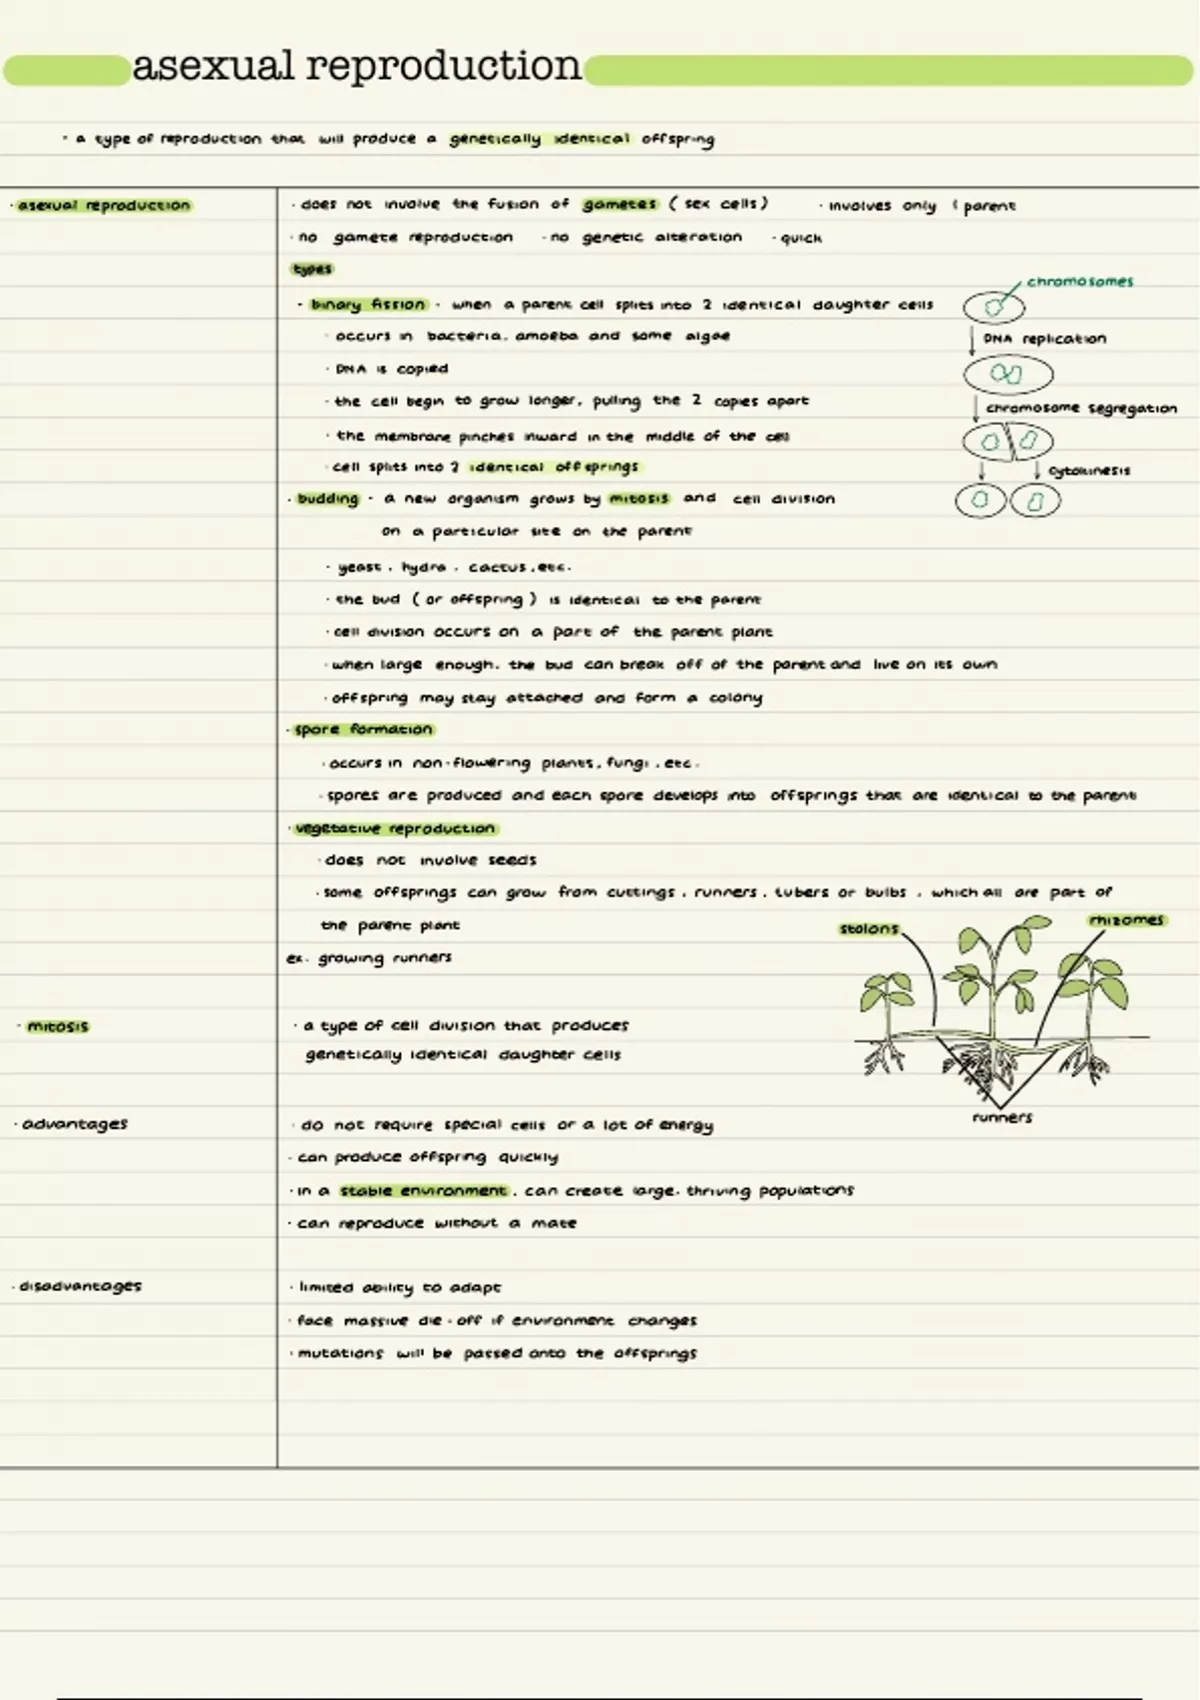 asexual reproduction
· a type of reproduction that will produce a genetically identical offspring
· asexual reproduction
· does not involve the fusion of gametes ( sex cells ) · involves only 1 parent
· no gamete reproduction · no genetic alteration · quick
types
· binary fission - when a parent cell splits into 2 identical daughter cells
· occurs in bacteria, amoeba and some algae
· DNA is copied
· the cell begin to grow longer, pulling the 2 copies apart
· the membrane pinches inward in the middle of the cell
· cell splits into 2 identical offsprings
chromosomes
DNA replication
chromosome segregation
cytokinesis
· budding - a new organism grows by mitosis and cell division
on a particular site on the parent
· yeast, hydra, cactus, etc.
· the bud ( or offspring ) is identical to the parent
· cell division occurs on a part of the parent plant
· when large enough, the bud can break off of the parent and live on its own
· offspring may stay attached and form a colony
· spore formation
· occurs in non-flowering plants, fungi, etc.
· spores are produced and each spore develops into offsprings that are identical to the parent
· vegetative reproduction
· does not involve seeds
· some offsprings can grow from cuttings, runners, tubers or bulbs, which all are part of
the parent plant
ex. growing runners
stolons
rhizomes
runners
· mitosis
· a type of cell division that produces
genetically identical daughter cells
· advantages
· do not require special cells or a lot of energy
· can produce offspring quickly
· in a stable environment, can create large, thriving populations
· can reproduce without a mate
· disadvantages
· limited ability to adapt
· face massive die-off if environment changes
· mutations will be passed onto the offsprings